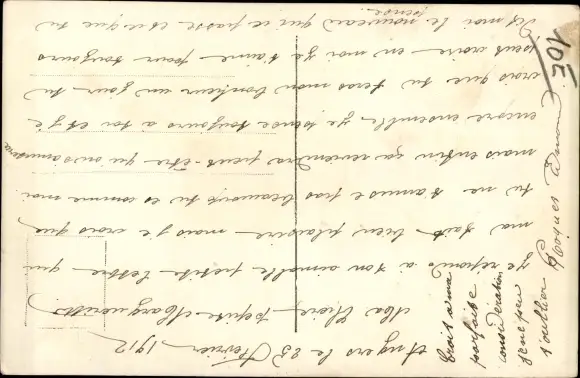 Angers le 23 Février 1912
Ma Chère petite Marguerite
Je réponds à ton aimable petite lettre qui
ma fait bien plaisire mais je crois que
tu ne t'amuse pas beaucoup tu es comme moi
mais enfin ça reviendra peut-être qu'on s'amusera
encore ensemble je pense toujours a toi et je
crois que tu feras mon bonheur un jour tu
peut croire en moi je t'aime pour toujours
dis moi le nouveau qui ce passe et ce que tu
pense
Crois à ma
parfaite
considération
je ne peu
t'oublier
Roques
10E